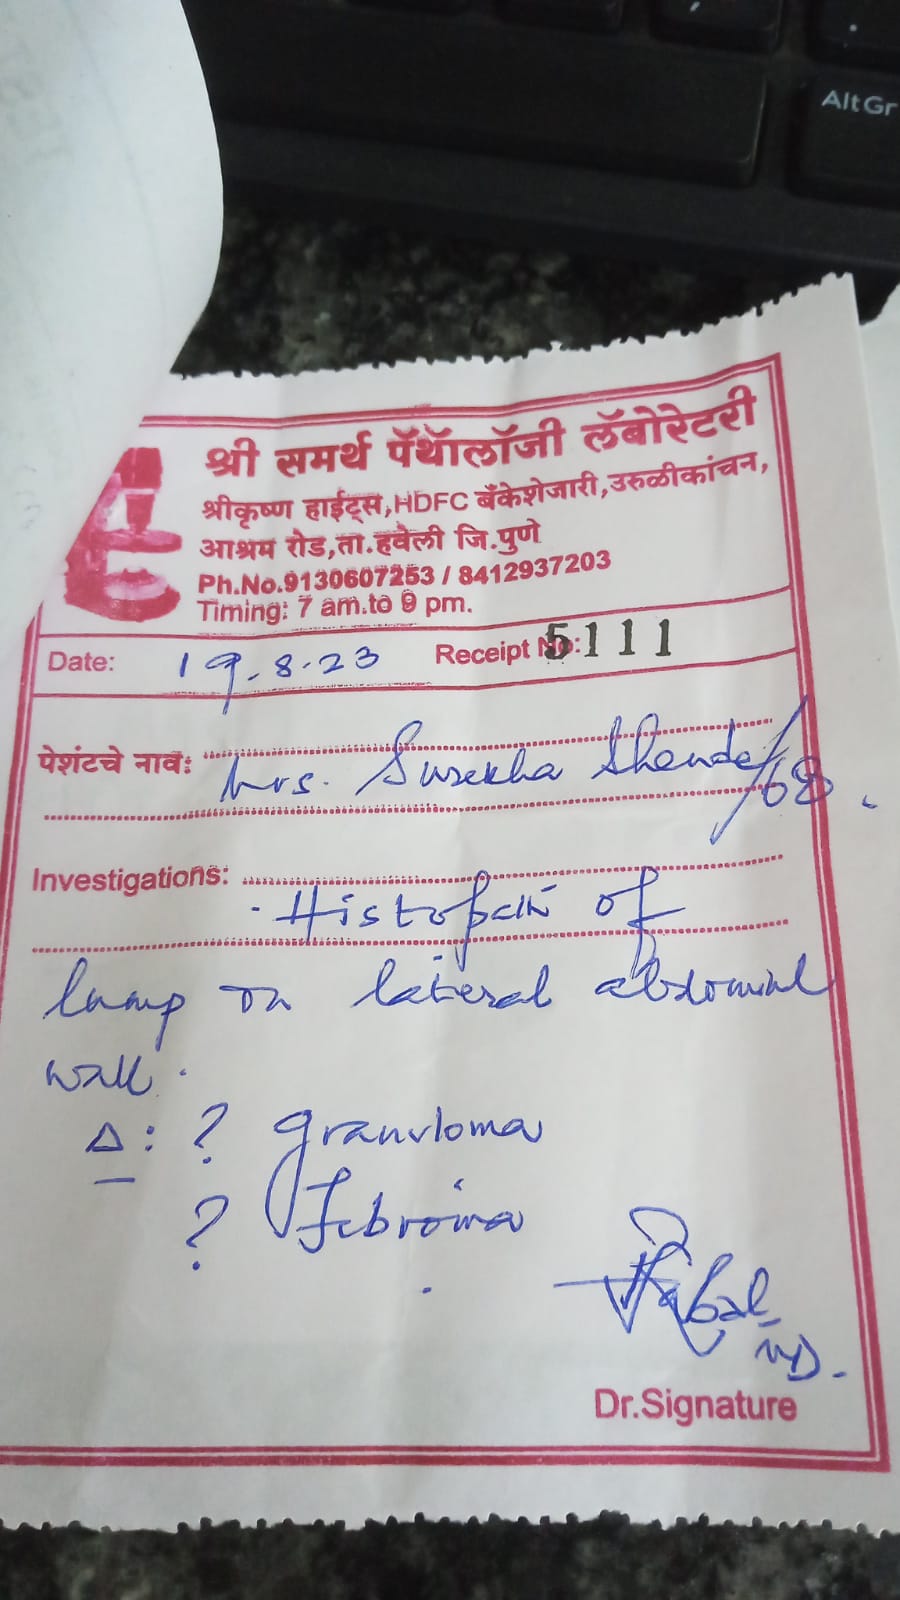 AltGr
श्री समर्थ पॅथॉलॉजी लॅबोरेटरी
श्रीकृष्ण हाईट्स,HDFC बँकेशेजारी,उरुळीकांचन,
आश्रम रोड,ता.हवेली जि.पुणे
Ph.No.9130607253 / 8412937203
Timing: 7 am.to 9 pm.
Date: 19.8.23 Receipt No: 5111
पेशंटचे नाव: Mrs. Surekha Shende/68.
Investigations:
Histopath of
lump on lateral abdominal
wall.
Δ: ? granuloma
? febroma
MD.
Dr.Signature